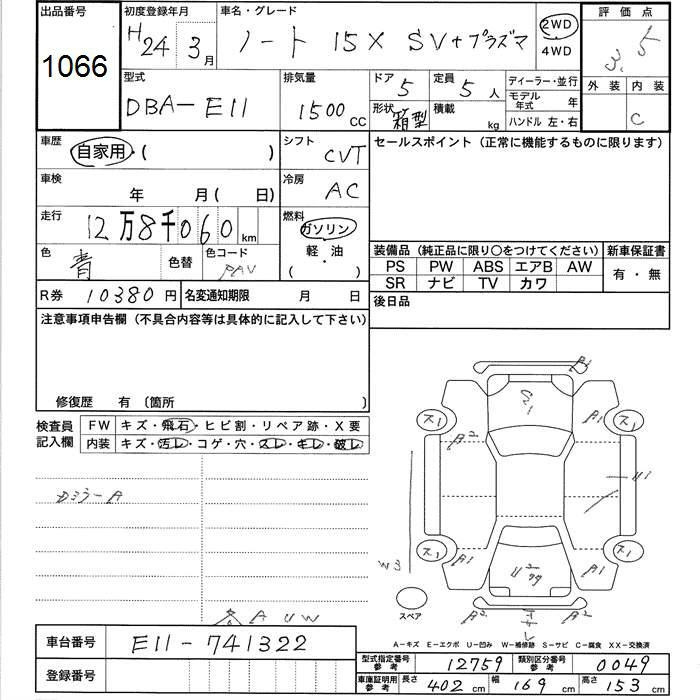 出品番号 初度登録年月 車名・グレード 2WD 評価点
1066 H24 3月 ノート 15X SV+プラズマ 4WD 3.5
型式 排気量 ドア 定員 ディーラー・並行 外装 内装
DBA-E11 1500cc 5 5人 モデル年式 年 C
形状 箱型 積載 kg ハンドル 左・右
車歴 自家用・( ) シフト CVT セールスポイント (正常に機能するものに限ります)
車検 年 月( 日) 冷房 AC
走行 12万8千060km 燃料 ガソリン・軽油 ( )
色 青 色替 色コード
装備品 (純正品に限り○をつけてください) 新車保証書
PS PW ABS エアB AW 有・無
SR ナビ TV カワ
R券 10380円 名変通知期限 月 日 後日品
注意事項申告欄 (不具合内容等は具体的に記入して下さい)
修復歴 有 〔箇所 〕
検査員記入欄 FW キズ・飛石・ヒビ割・リペア跡・X要
内装 キズ・汚レ・コゲ・穴・スレ・キレ・破レ
A1
A1
A2
ス1
ス1
U1
W3
ス1
ス1
A2
A1
スペア
A2
A2
A U W
A-キズ E-エクボ U-凹み W-補修跡 S-サビ C-腐食 XX-交換済
車台番号 E11-741322
型式指定番号 参考 12759 類別区分番号 参考 0049
登録番号
車庫証明用 参考 長さ 402cm 幅 169cm 高さ 153cm